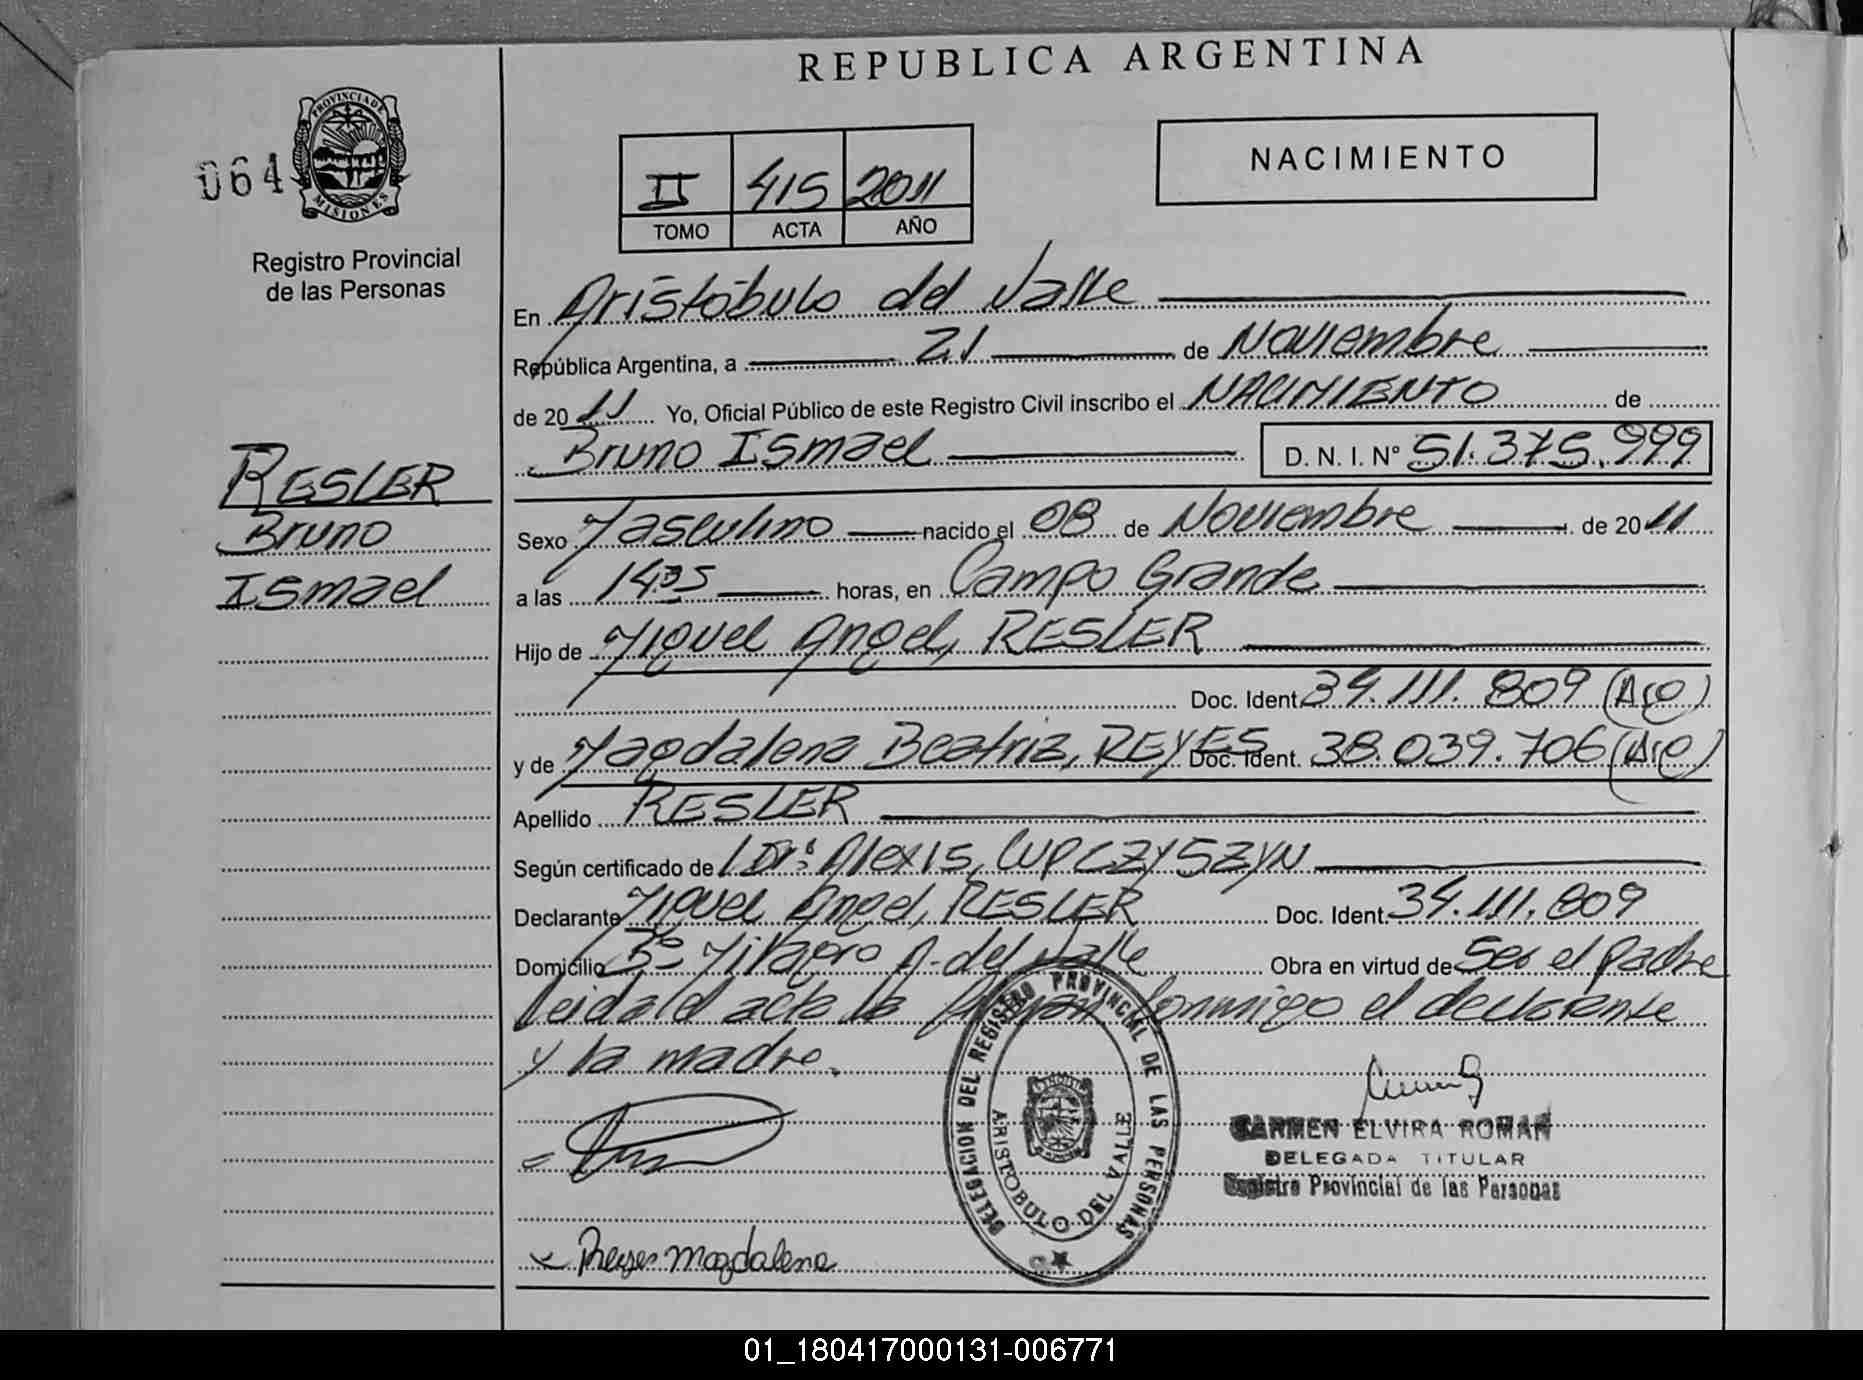 REPUBLICA ARGENTINA
PROVINCIA DE
MISIONES
064
Registro Provincial
de las Personas
NACIMIENTO
II 415 2011
TOMO ACTA AÑO
RESLER
Bruno
Ismael
En Aristóbulo del Valle
República Argentina, a 21 de Noviembre
de 2011 Yo, Oficial Público de este Registro Civil inscribo el NACIMIENTO de
Bruno Ismael D. N. I. N° 51.375.999
Sexo Masculino nacido el 08 de Noviembre de 2011
a las 14:35 horas, en Campo Grande
Hijo de Miguel Angel, RESLER
Doc. Ident. 34.111.809 (Arg)
y de Magdalena Beatriz, REYES Doc. Ident. 38.039.706 (Arg)
Apellido RESLER
Según certificado de Alexis, CUPCZYSZYN
Declarante Miguel Angel, RESLER Doc. Ident. 34.111.809
Domicilio B° Milagro A. del Valle Obra en virtud de Ser el padre
Leida el acta la firman conmigo el declarante
y la madre.
DELEGACION DEL REGISTRO PROVINCIAL DE LAS PERSONAS
ARISTOBULO DEL VALLE
CARMEN ELVIRA ROMAN
DELEGADA TITULAR
Registro Provincial de las Personas
Reyes Magdalena
01_180417000131-006771